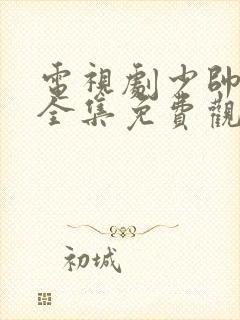 電視劇少帥
全集免費觀
初城